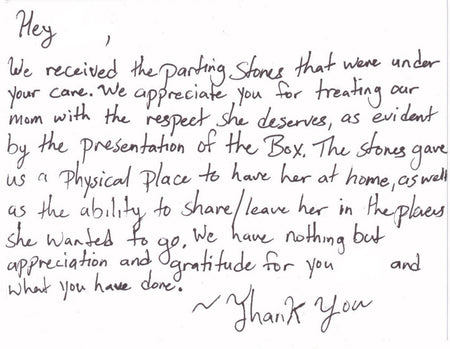 Hey ,
We received the parting stones that were under
your care. We appreciate you for treating our
mom with the respect she deserves, as evident
by the presentation of the Box. The stones gave
us a Physical Place to have her at home, as well
as the ability to share/leave her in the places
she wanted to go. We have nothing but
appreciation and gratitude for you and
what you have done.
~ Thank You